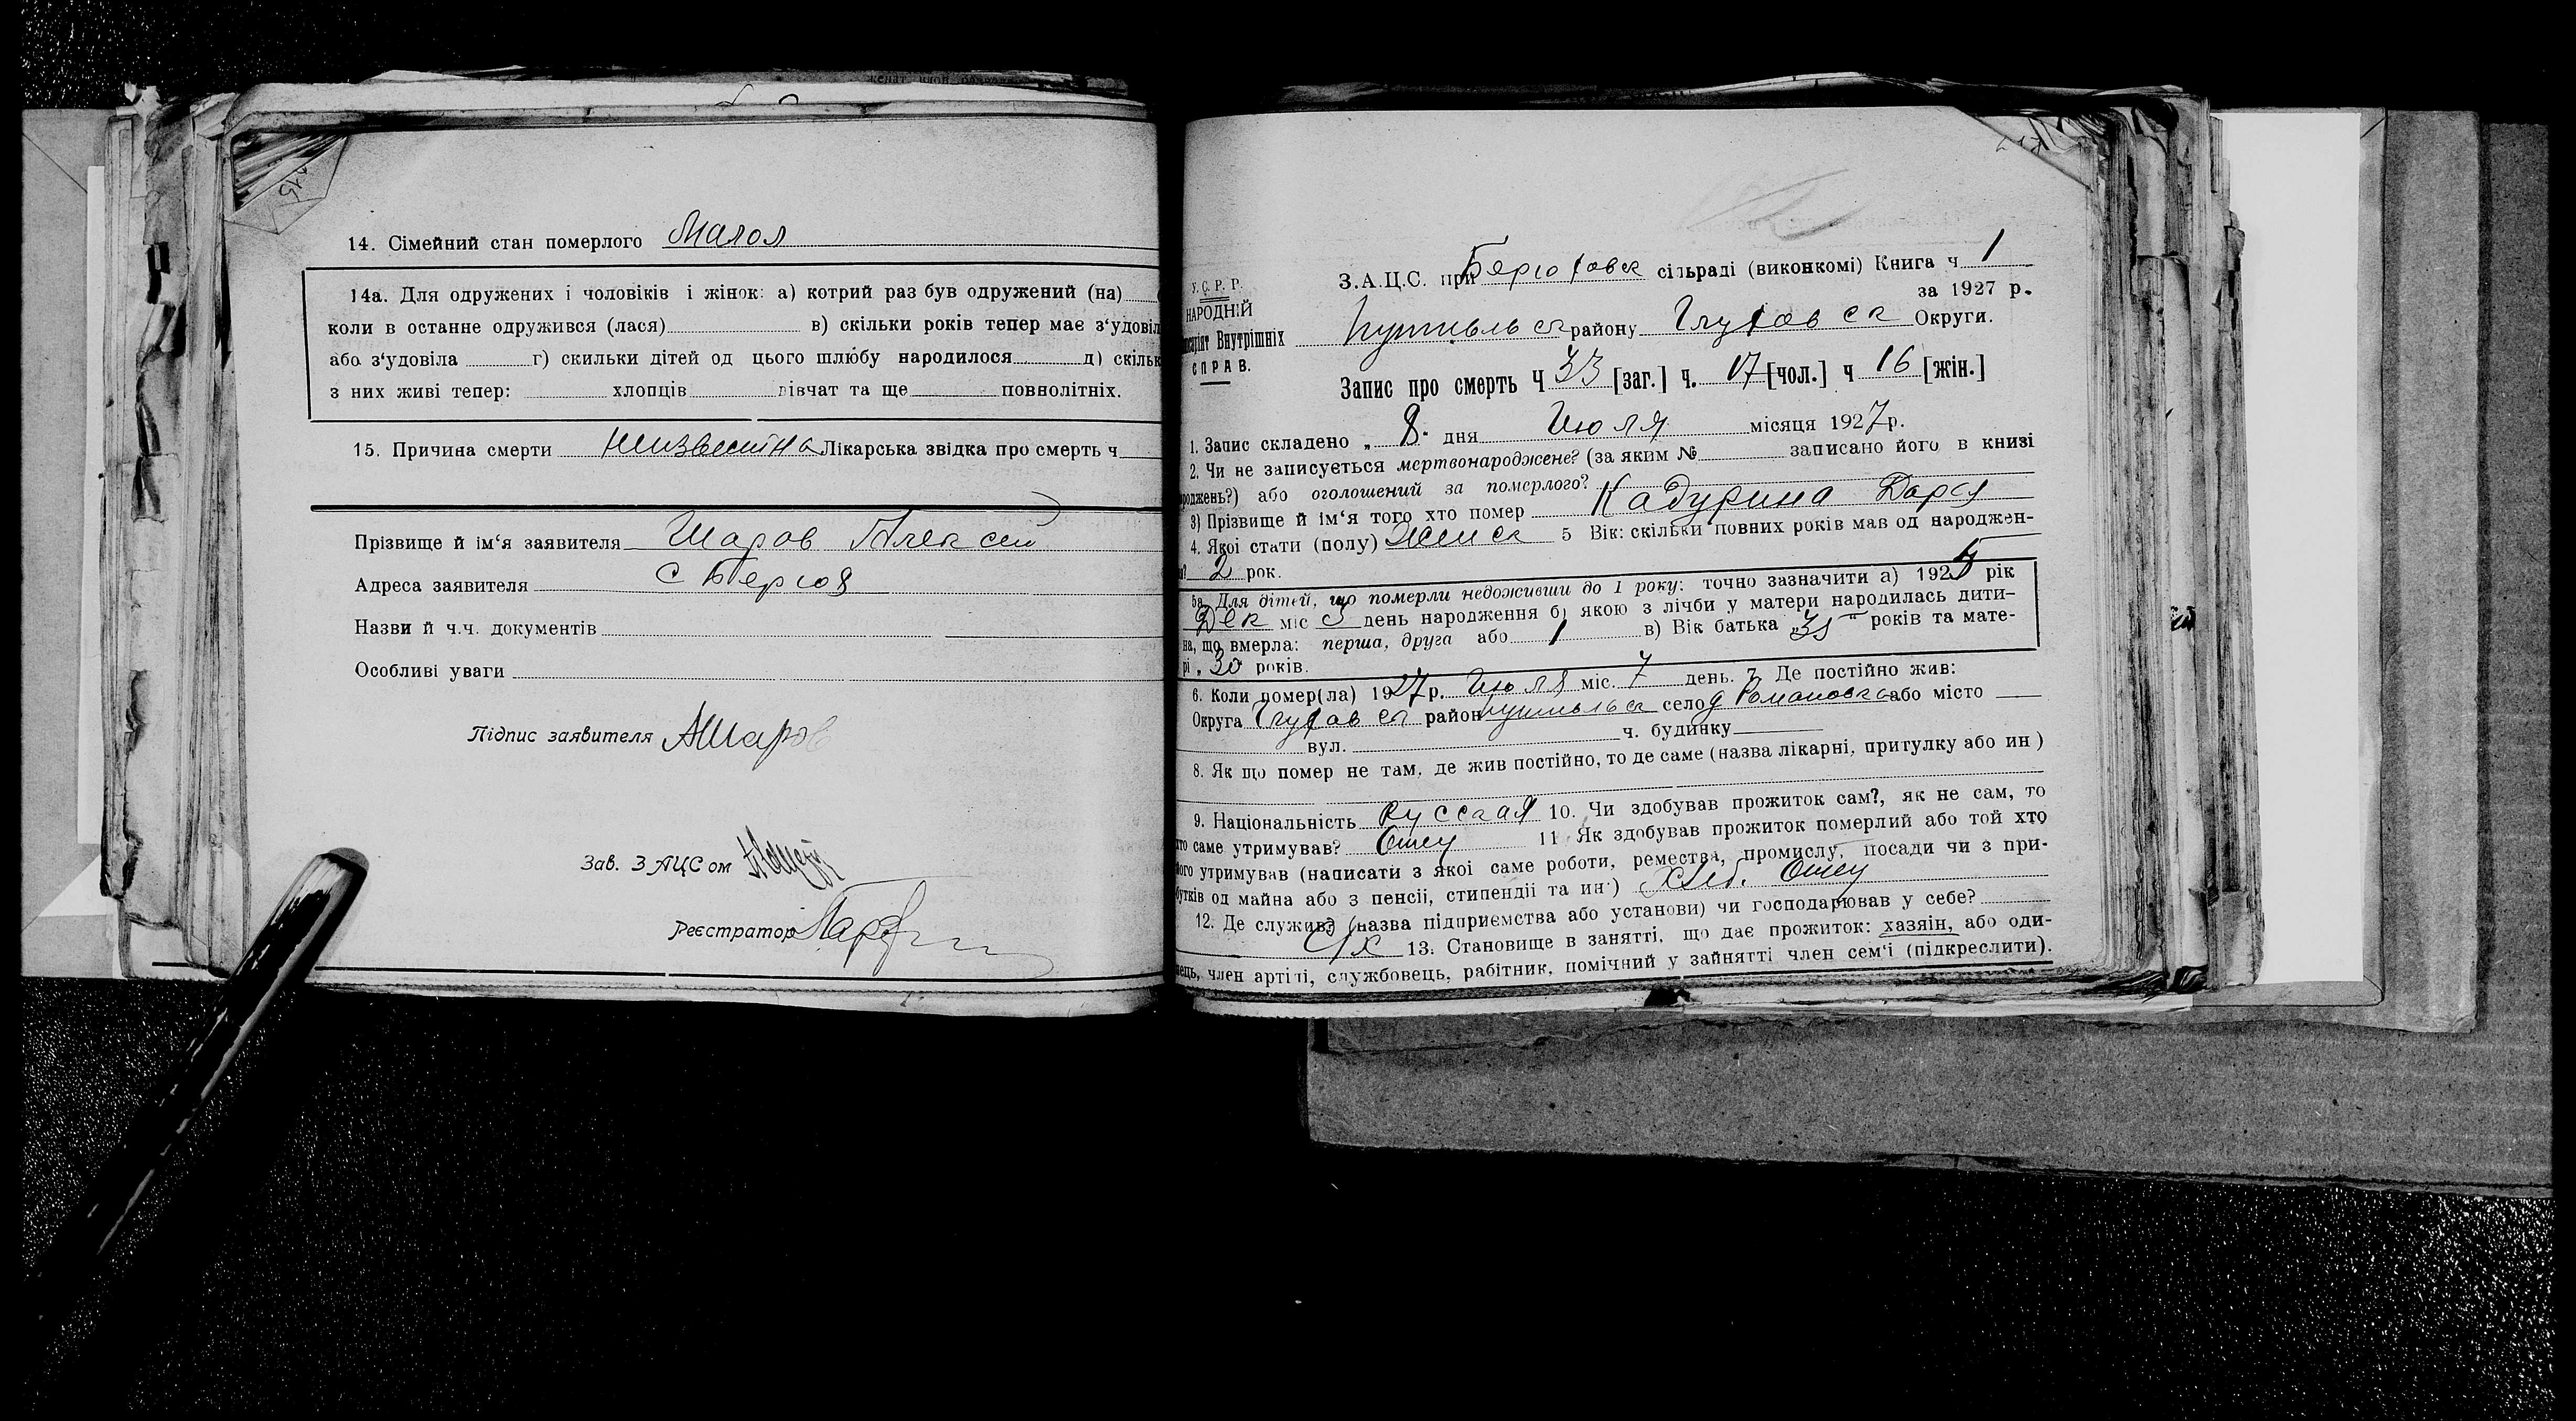 14. Сімейний стан померлого Малол
14а. Для одружених і чоловіків і жінок: а) котрий раз був одружений (на)
коли в останне одружився (лася) в) скільки років тепер має з‘удовіл
або з‘удовіла г) скильки дітей од цього шлюбу народилося д) скільк
з них живі тепер: хлопців дівчат та ще повнолітніх.
15. Причина смерти неизвестна Лікарська звідка про смерть ч
Прізвище й ім‘я заявителя Шаров Алексей
Адреса заявителя с Берюх
Назви й ч.ч. документів
Особливі уваги
Підпис заявителя АШаров
Зав. ЗАЦСом
Реєстратор
У.С.Р.Р.
НАРОДНІЙ
Внутрішніх
СПРАВ.
З.А.Ц.С. при Берюховск сільраді (виконкомі) Книга ч 1
за 1927 р.
Путивльск району Глуховск Округи.
Запис про смерть Ч 33 [заг.] ч. 17 [чол.] ч 16 [жін.]
1. Запис складено „ 8 дня Июля місяця 1927 р.
2. Чи не записується мертвонароджене? (за яким № записано його в книзі
роджень?) або оголошений за померлого?
3) Прізвище й ім‘я того хто помер Кадурина Дарья
4. Якої стати (полу) Женск 5 Вік: скільки повних років мав од народжен-
2 рок.
5а. Для дітей, що померли недоживши до 1 року: точно зазначити а) 1925 рік
Дек міс 3 день народження б) якою з лічби у матери народилась дити-
на, що вмерла: перша, друга або 1 в) Вік батька „35“ років та мате-
рі „ 30 років.
6. Коли помер(ла) 1927 р. Июля міс. 7 день. 7 Де постійно жив:
Округа Глуховск район Путивльск село д Романовка або місто
вул. ч. будинку
8. Як що помер не там, де жив постійно, то де саме (назва лікарні, притулку або ин )
9. Національність Русская 10. Чи здобував прожиток сам?, як не сам, то
хто саме утримував? Отец 11 Як здобував прожиток померлий або той хто
його утримував (написати з якоі саме роботи, ремества, промислу, посади чи з при-
бутків од майна або з пенсіі, стипендіі та ин·) хлеб. Отец
12. Де служив (назва підприємства або установи) чи господарював у себе?
с/х 13. Становище в занятті, що дає прожиток: хазяїн, або оди-
нець, член артілі, службовець, рабітник, помічний у зайнятті член сем‘ї (підкреслити).